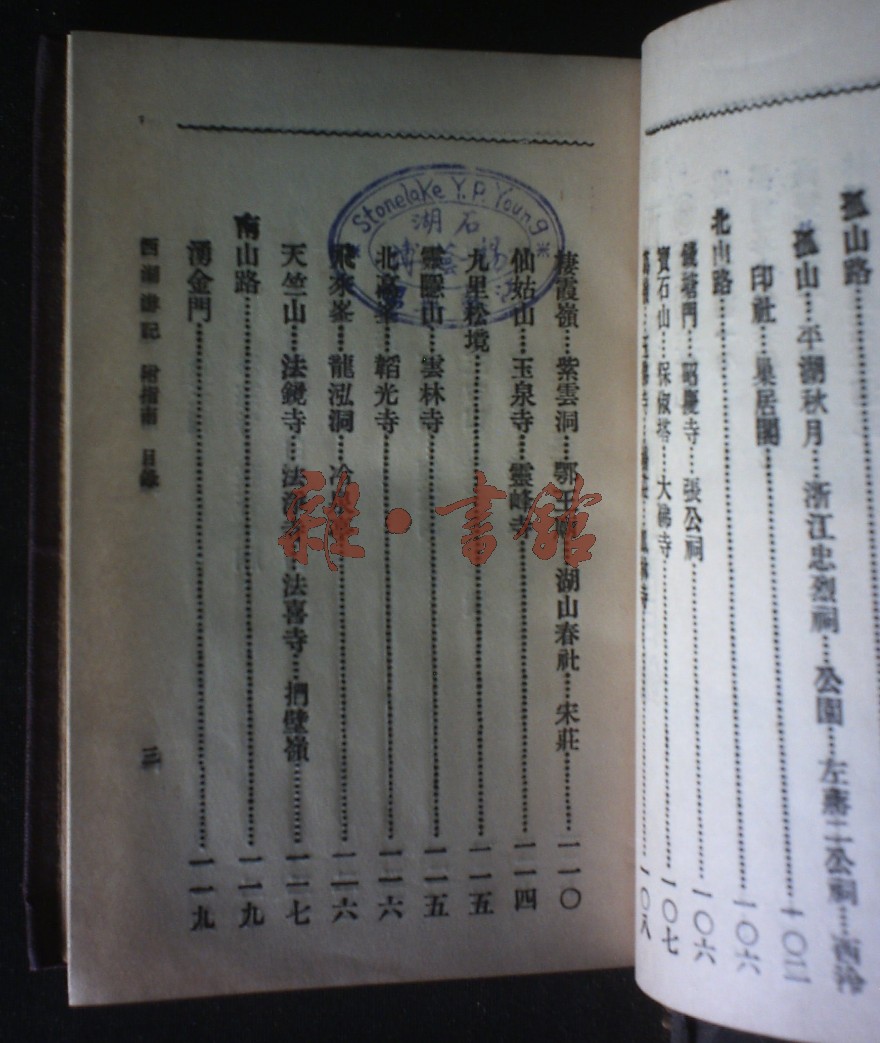 孤山路
孤山…平湖秋月…浙江忠烈祠…公園…左蔣二公祠…西泠
印社…巢居閣…一〇二
一〇六
北山路
錢塘門…昭慶寺…張公祠…一〇六
寶石山…保俶塔…大佛寺…一〇七
一〇八
棲霞嶺…紫雲洞…鄂王廟…湖山春社…宋莊…一一〇
仙姑山…玉泉寺…靈峰寺…一一四
九里松境…一一五
靈隱山…雲林寺…一一五
北高峯…韜光寺…一一六
飛來峯…龍泓洞…冷泉亭…一一六
天竺山…法鏡寺…法淨寺…法喜寺…捫壁嶺…一一七
南山路…一一九
湧金門…一一九
西湖游記 附指南 目錄
三
Stonelake Y.P. Young
石湖
雜·書館